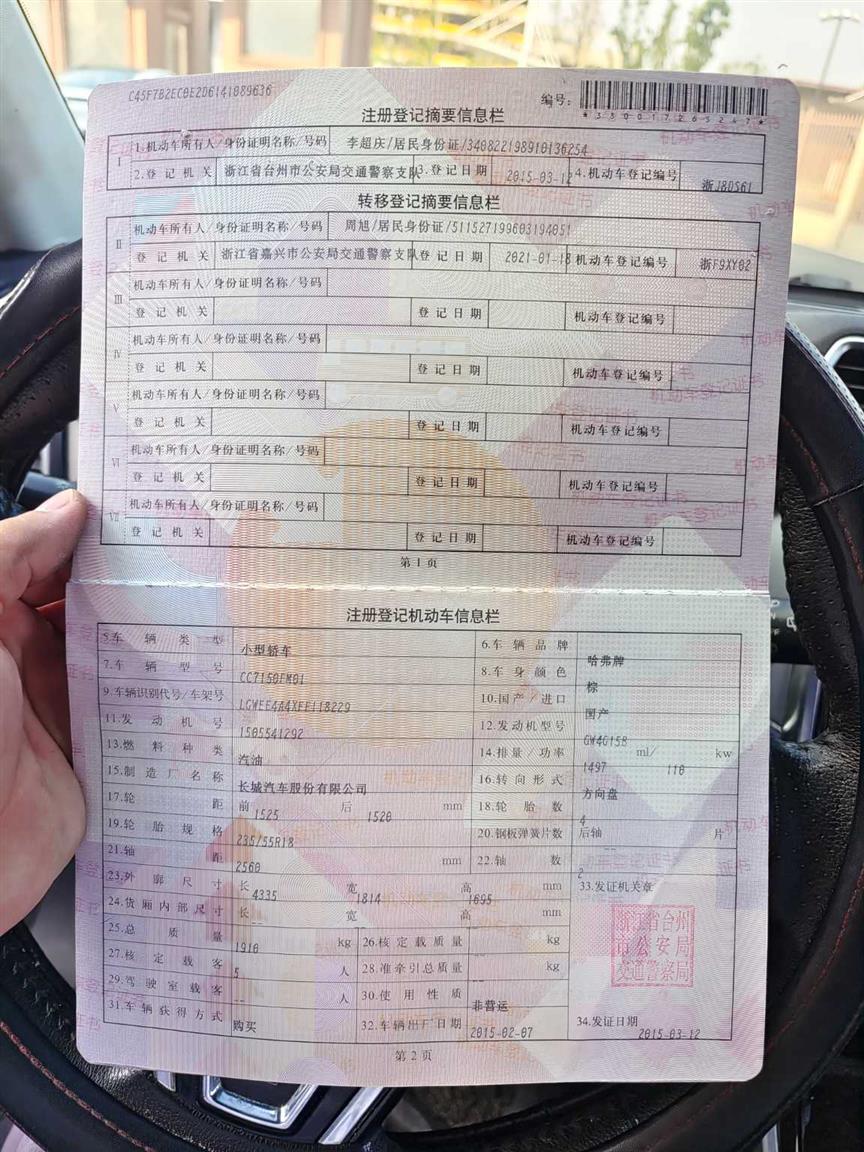 C45F7B2EC0E2D6141889636
编号:
*330017265247*
注册登记摘要信息栏
I 1.机动车所有人/身份证明名称/号码 李超庆/居民身份证/340822198910136254
2.登记机关 浙江省台州市公安局交通警察支队 3.登记日期 2015-03-12 4.机动车登记编号 浙J8DS61
转移登记摘要信息栏
II 机动车所有人/身份证明名称/号码 周旭/居民身份证/511527199603194051
登记机关 浙江省嘉兴市公安局交通警察支队 登记日期 2021-01-18 机动车登记编号 浙F9XY02
III 机动车所有人/身份证明名称/号码
登记机关 登记日期 机动车登记编号
IV 机动车所有人/身份证明名称/号码
登记机关 登记日期 机动车登记编号
V 机动车所有人/身份证明名称/号码
登记机关 登记日期 机动车登记编号
VI 机动车所有人/身份证明名称/号码
登记机关 登记日期 机动车登记编号
VII 机动车所有人/身份证明名称/号码
登记机关 登记日期 机动车登记编号
第1页
注册登记机动车信息栏
5.车辆类型 小型轿车 6.车辆品牌 哈弗牌
7.车辆型号 CC7150FM01 8.车身颜色 棕
9.车辆识别代号/车架号 LGWEE4A4XFE118229 10.国产/进口 国产
11.发动机号 1505541292 12.发动机型号 GW4G15B
13.燃料种类 汽油 14.排量/功率 1497 ml/ 110 kw
15.制造厂名称 长城汽车股份有限公司 16.转向形式 方向盘
17.轮距 前 1525 后 1520 mm 18.轮胎数 4
19.轮胎规格 235/55R18 20.钢板弹簧片数 后轴 -- 片
21.轴距 2560 mm 22.轴数 2
23.外廓尺寸 长 4335 宽 1814 高 1695 mm 33.发证机关章
24.货厢内部尺寸 长 -- 宽 高 mm
浙江省台州市公安局交通警察局
25.总质量 1910 kg 26.核定载质量 -- kg
27.核定载客 5 人 28.准牵引总质量 -- kg
29.驾驶室载客 -- 人 30.使用性质 非营运
31.车辆获得方式 购买 32.车辆出厂日期 2015-02-07 34.发证日期 2015-03-12
第2页